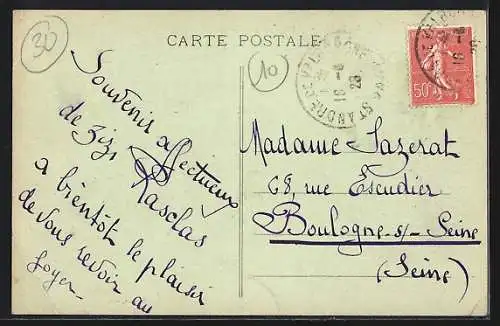 30
CARTE POSTALE
10
ST ANDRE DE VALBORGNE
16 - 8
50c
Souvenir affectueux
de Zizi,
Rasclas
a bientôt le plaisir
de vous revoir au
foyer-
Madame Lazerat
68, rue Escudier
Boulogne-s/-Seine
(Seine)